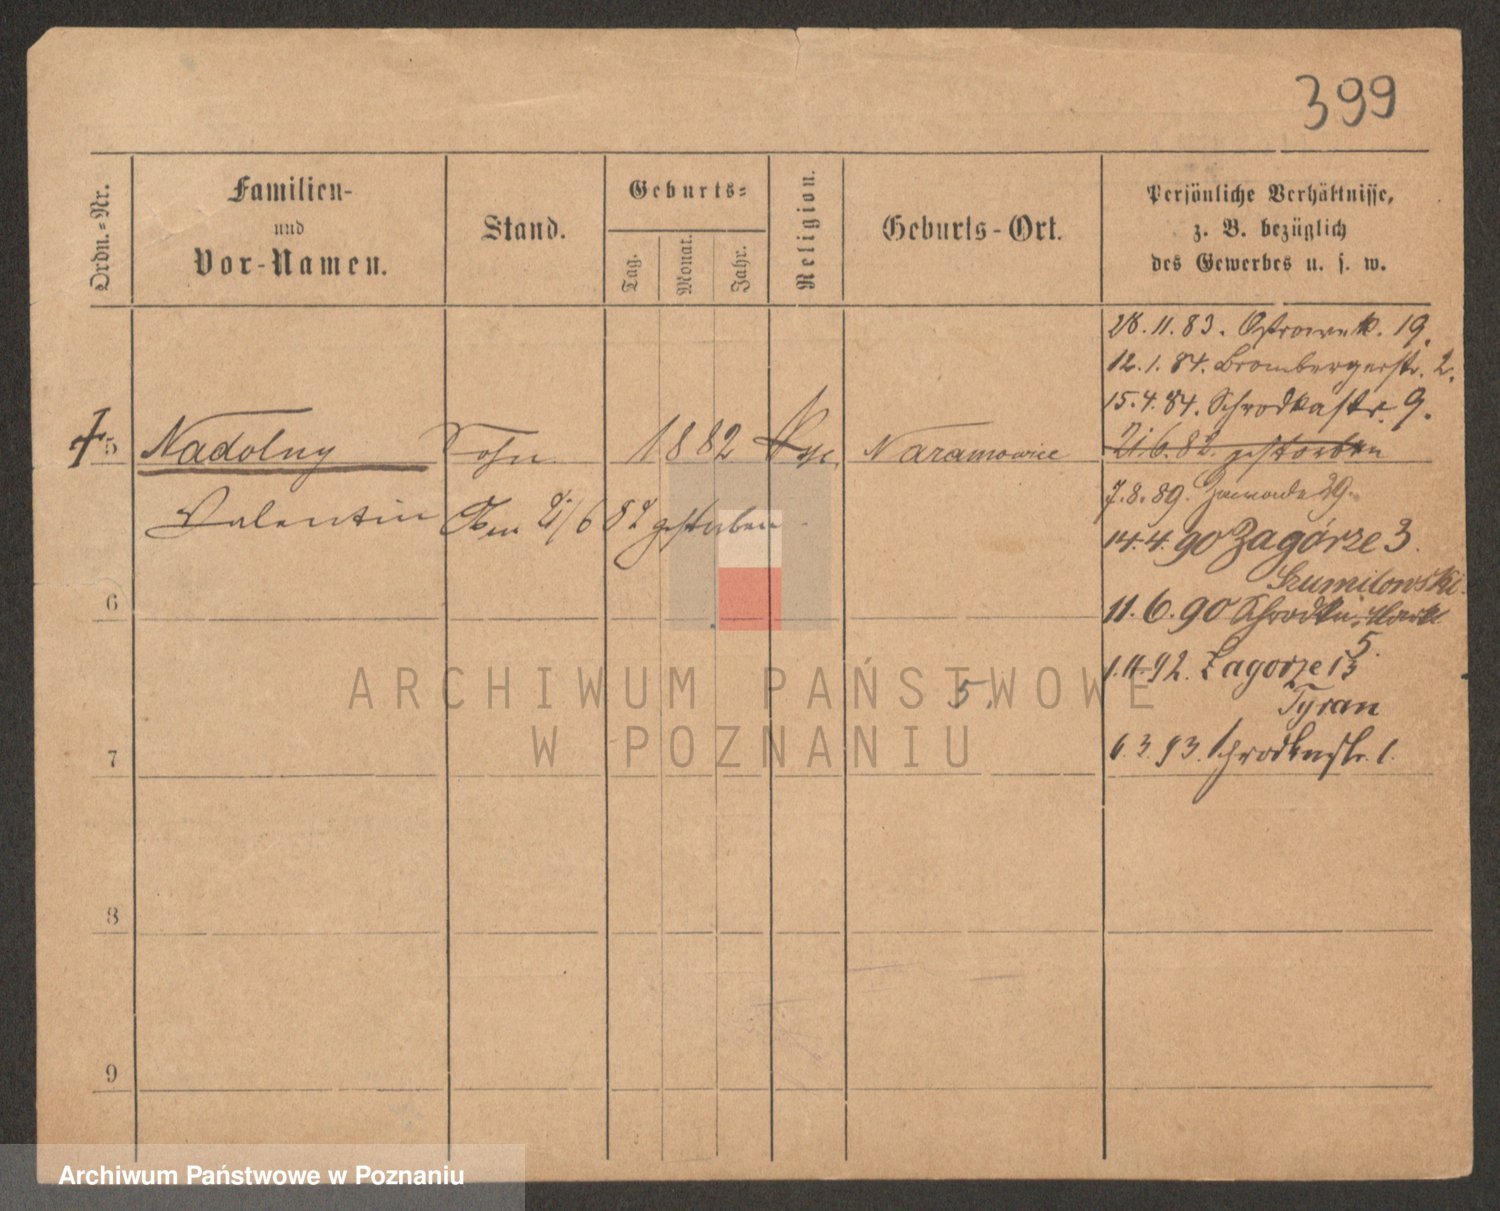 399
Ordn.-Nr.
Familien-
und
Vor-Namen.
Stand.
Geburts-
Tag.
Monat.
Jahr.
Religion.
Geburts-Ort.
Persönliche Verhältnisse,
z. B. bezüglich
des Gewerbes u. s. w.
28.11.83. Ostrowek. 19.
12.1.84. Brombergerstr. 2.
15.4.84. Schrodkastr. 9.
5 Nadolny Sohn 1882 Naramowice
gestorben
Valentin Am 21/6 82 gestorben
7.8.89. 29.
14.4.90 Zagórze 3.
Szumilowski
6
11.6.90 Schrodka, Markt
5.
1.11.92. Zagorze 13
5.
Tyran
7
6.3.93. Schrodkastr. 1.
8
9
ARCHIWUM PAŃSTWOWE
W POZNANIU
Archiwum Państwowe w Poznaniu